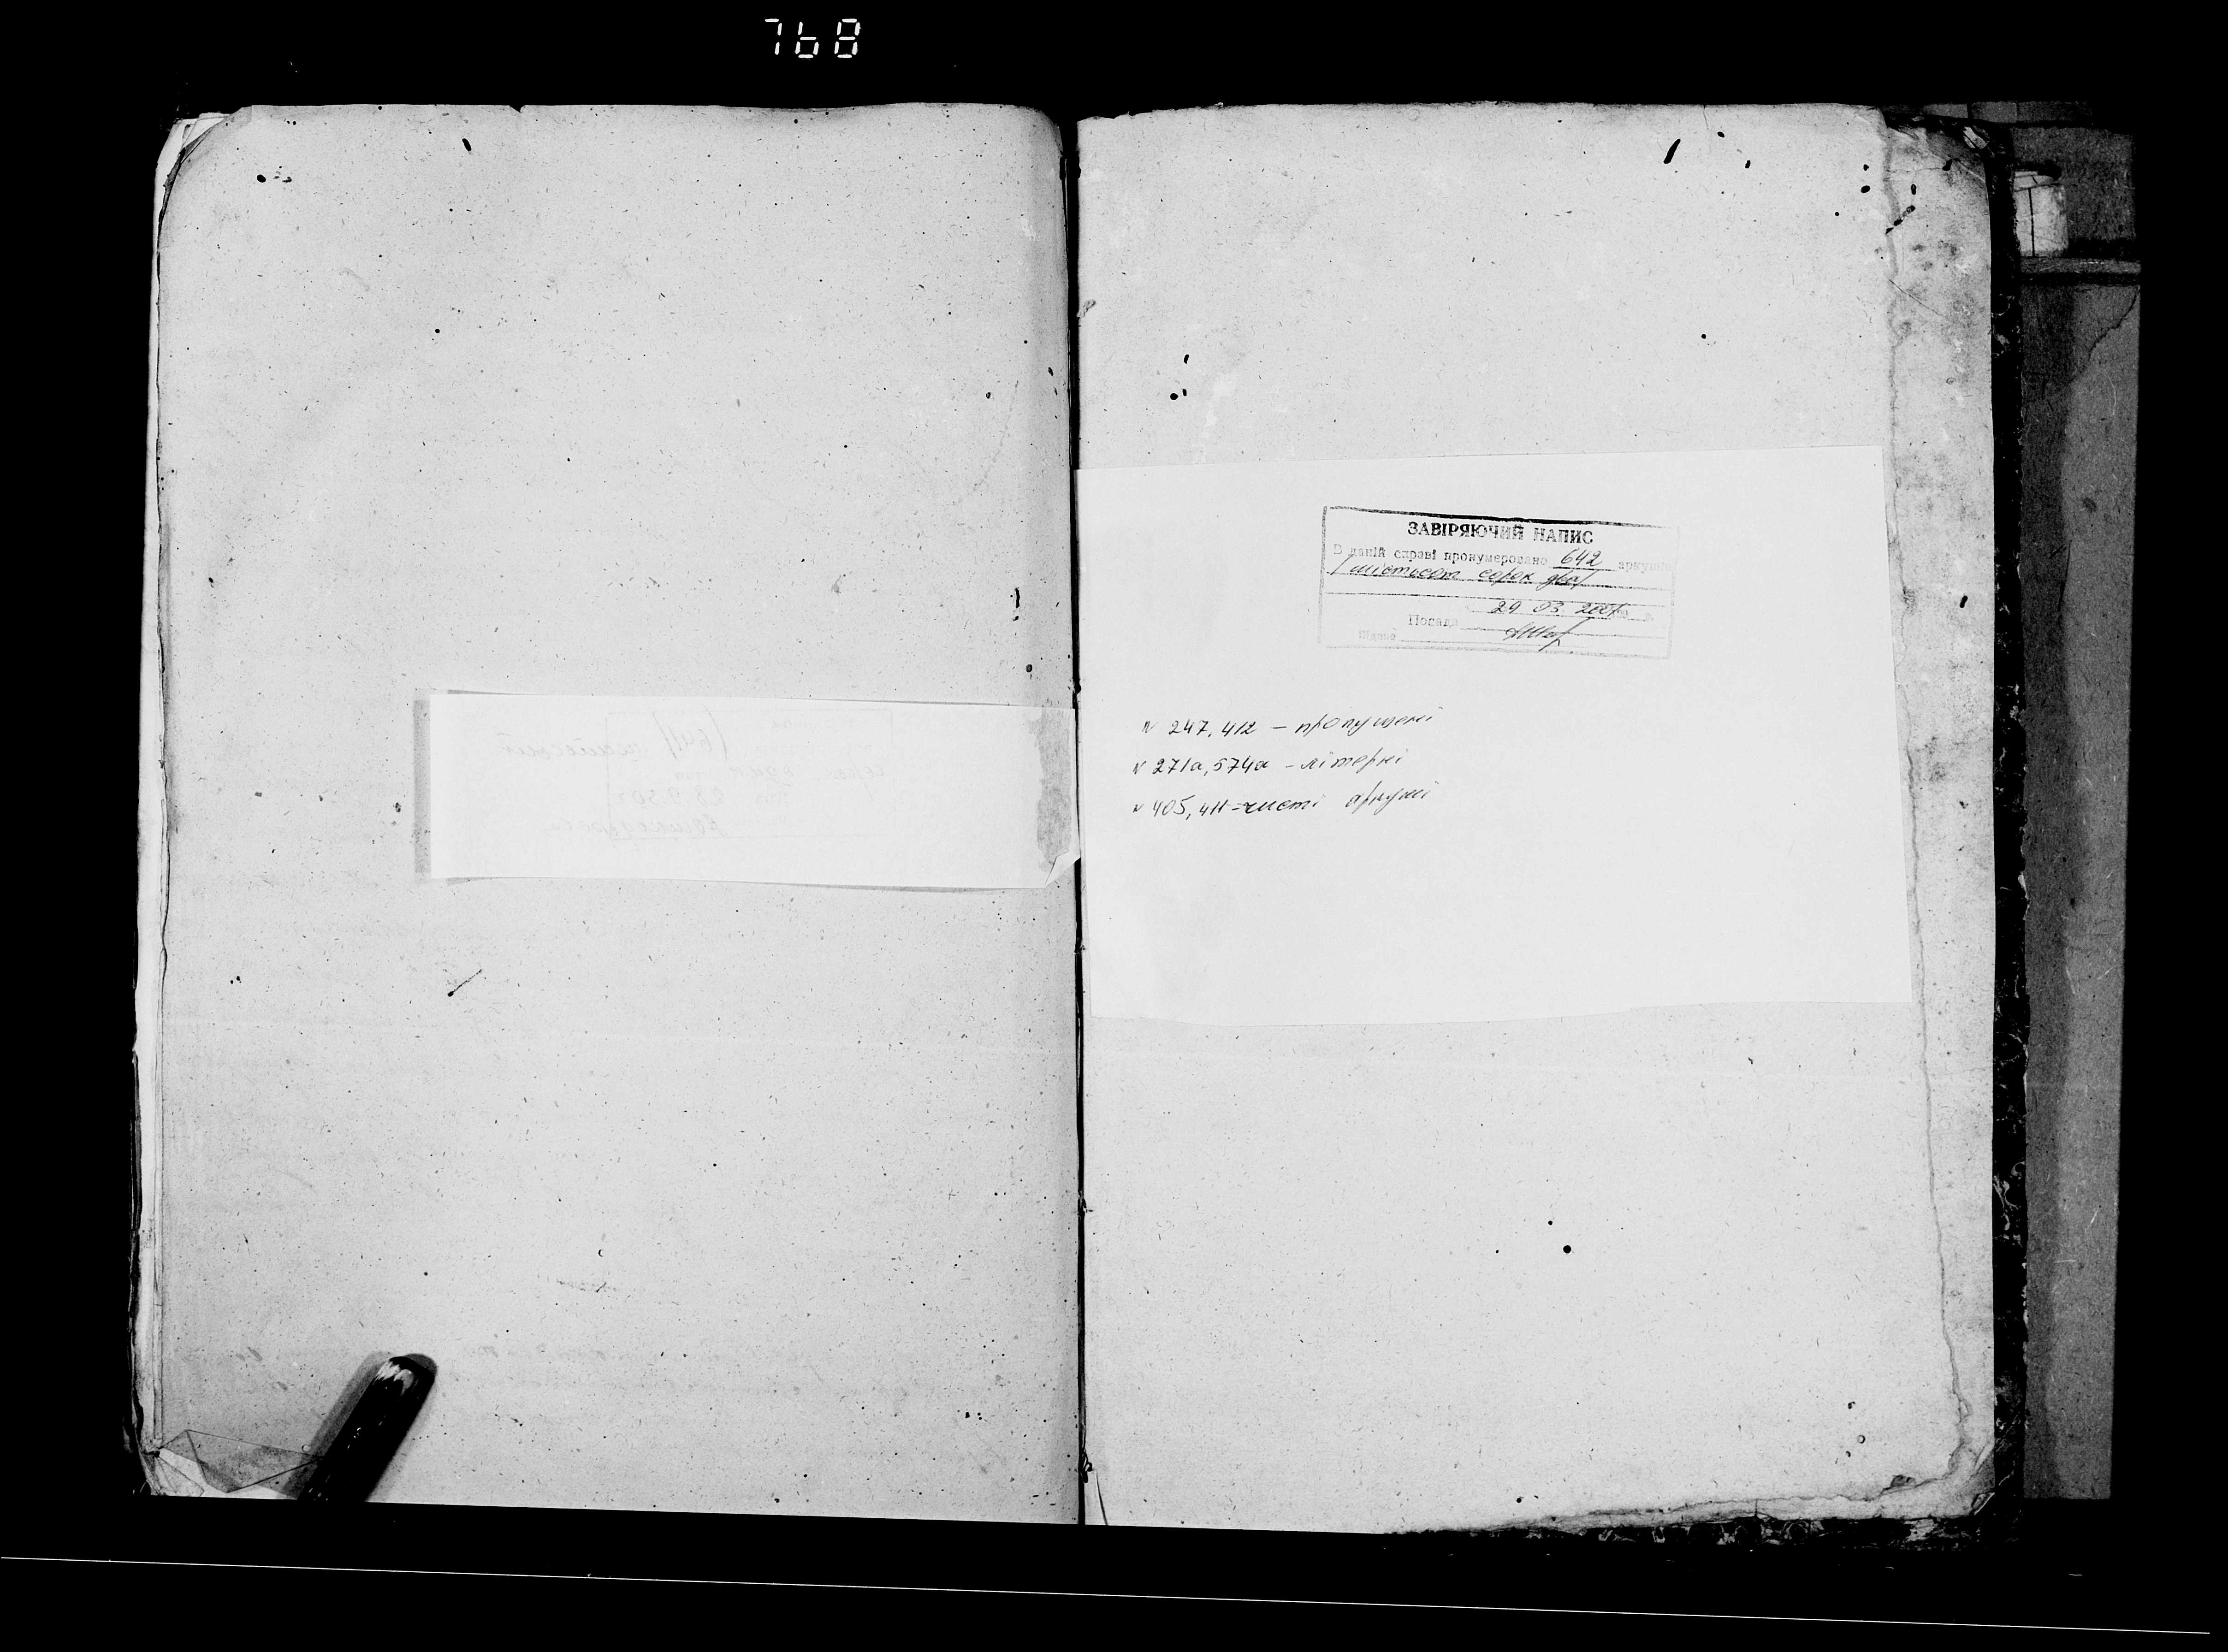 768
ЗАВІРЯЮЧИЙ НАПИС
В даній справі пронумеровано 642 аркушів
/шістьсот сорок два/
29 03 2001
Посада
Підпис
№ 247, 412 – пропущені
№ 271а, 574а – літерні
№ 405, 411 – чисті аркуші